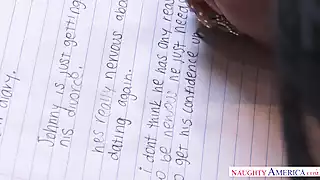 diary.
Johnny is just getting
his divorce.
hes really nervous abou
dating again.
i dont think he has any rea
o be nervous he just need
o get his confidence u
NAUGHTYAMERICA.COM